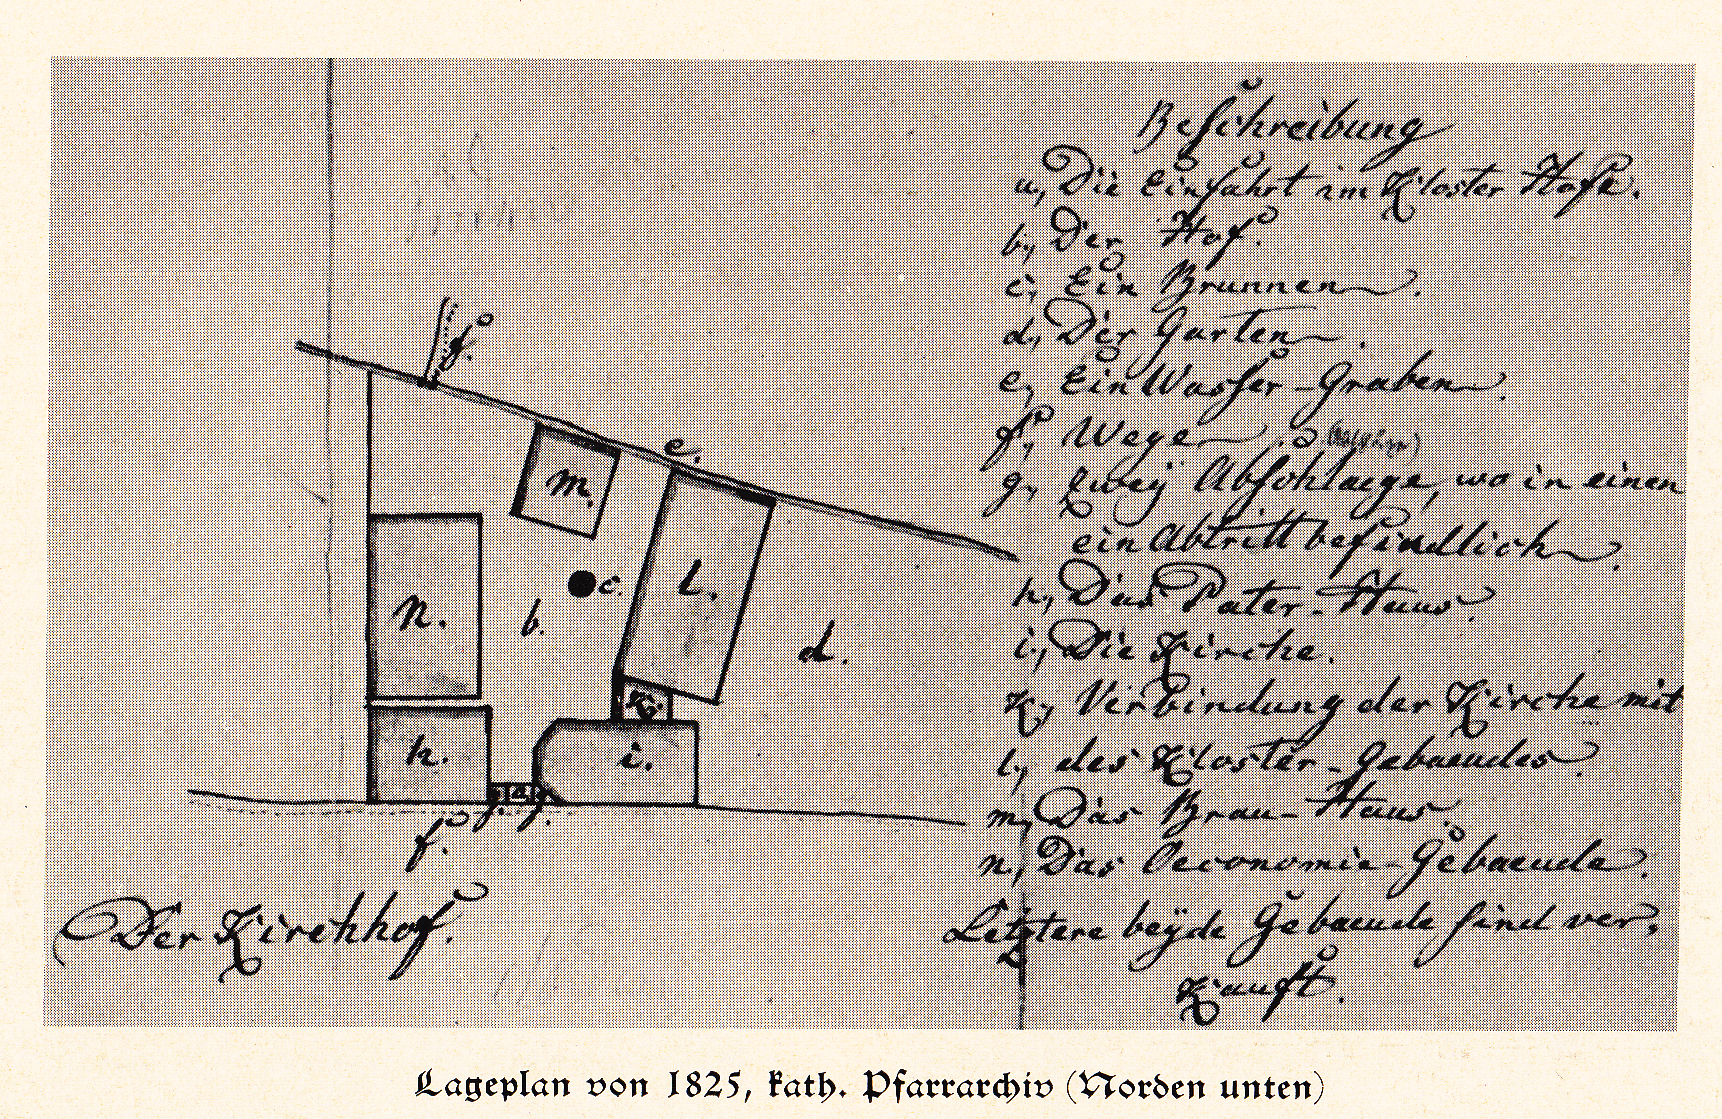 Beschreibung
a, Die Einfahrt im Kloster Hofe.
b, Der Hof.
c, Ein Brunnen.
d, Der Garten.
e, Ein Wasser-Graben.
f, Wege
g, zweÿ Abschlaege, wo in einen
ein Abtritt befindlich.
h, Das Pater-Haus
i, Die Kirche.
K, Verbindung der Kirche mit
l, des Kloster-Gebaeudes.
m, Das Brau-Haus.
n, Das Oeconomie-Gebaeude.
Letztere beÿde Gebaeude sind ver,
Kauft.
f.
e.
m.
c.
l.
n.
b.
d.
K.
h.
i.
g. a. g.
f.
Der Kirchhof.
Lageplan von 1825, kath. Pfarrarchiv (Norden unten)